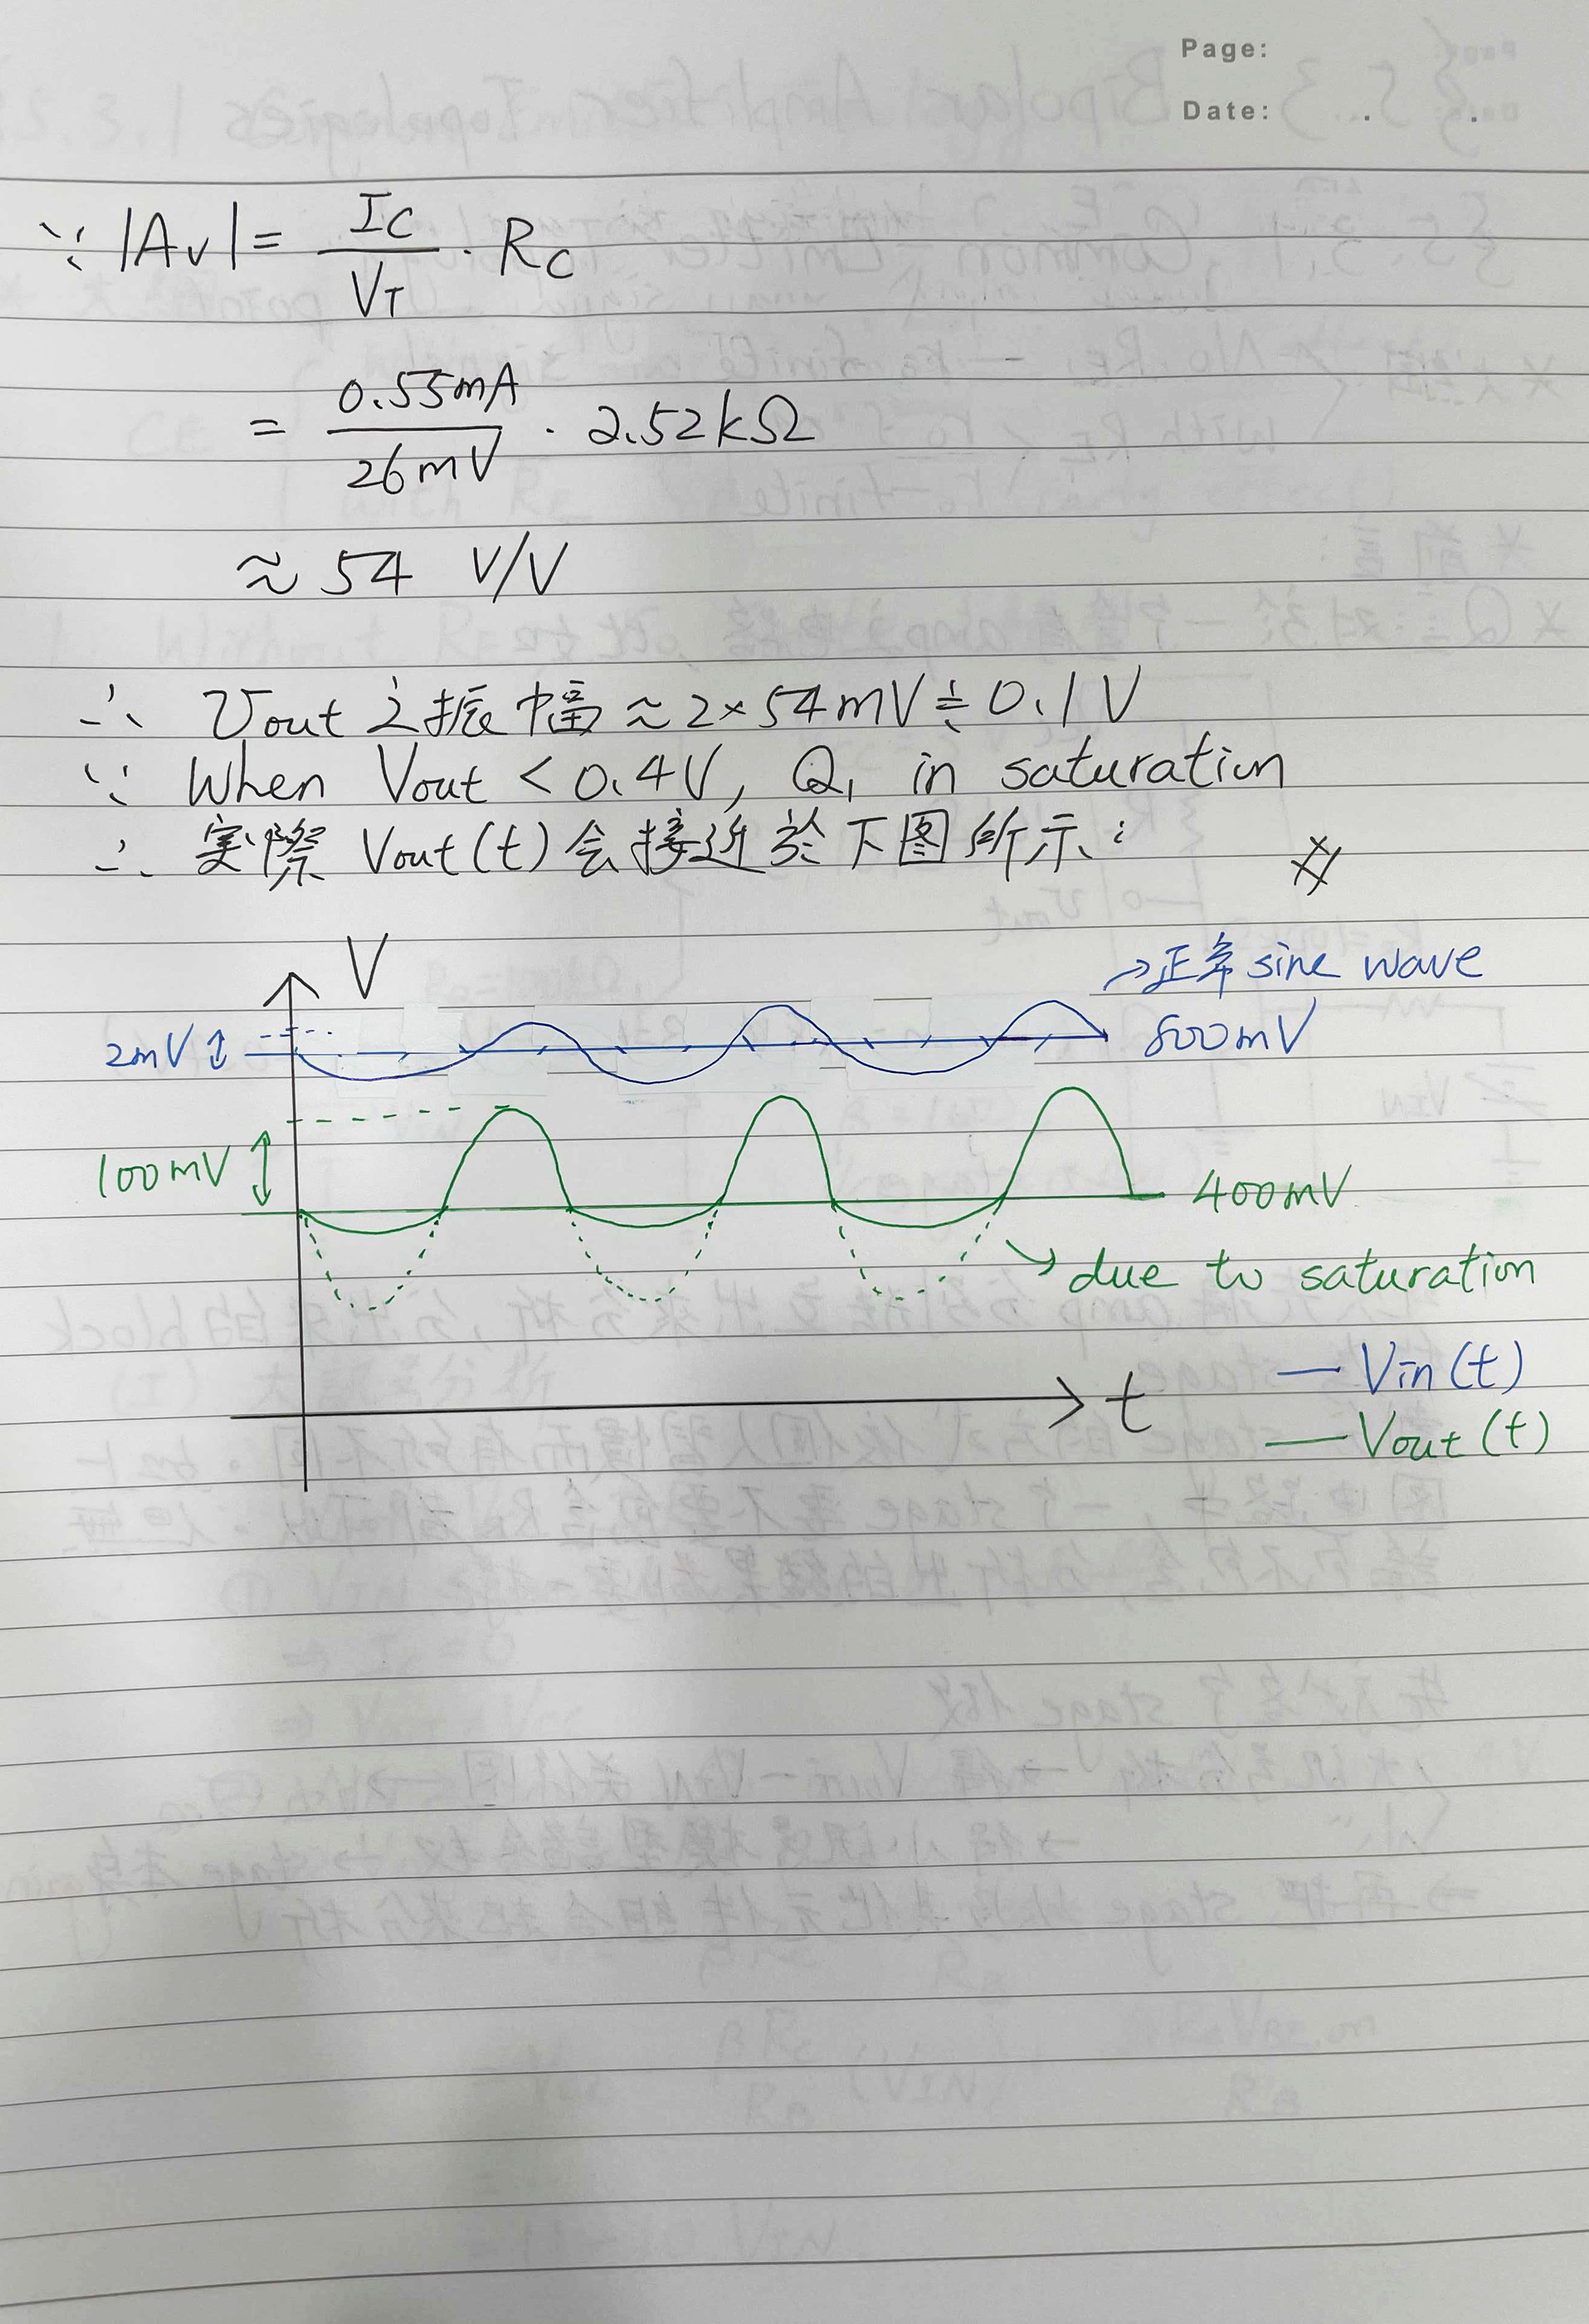 Page:
Date: . .
∵ |Av| = IC/VT · RC
= 0.55mA/26mV · 2.52kΩ
≈ 54 V/V
∴ Vout 之振幅 ≈ 2×54mV ≒ 0.1V
∵ When Vout < 0.4V, Q1 in saturation
∴ 実際 Vout(t) 会接近於下图所示:
V
→正常 sine wave
2mV
800mV
100mV
400mV
→ due to saturation
t
— Vin(t)
— Vout(t)